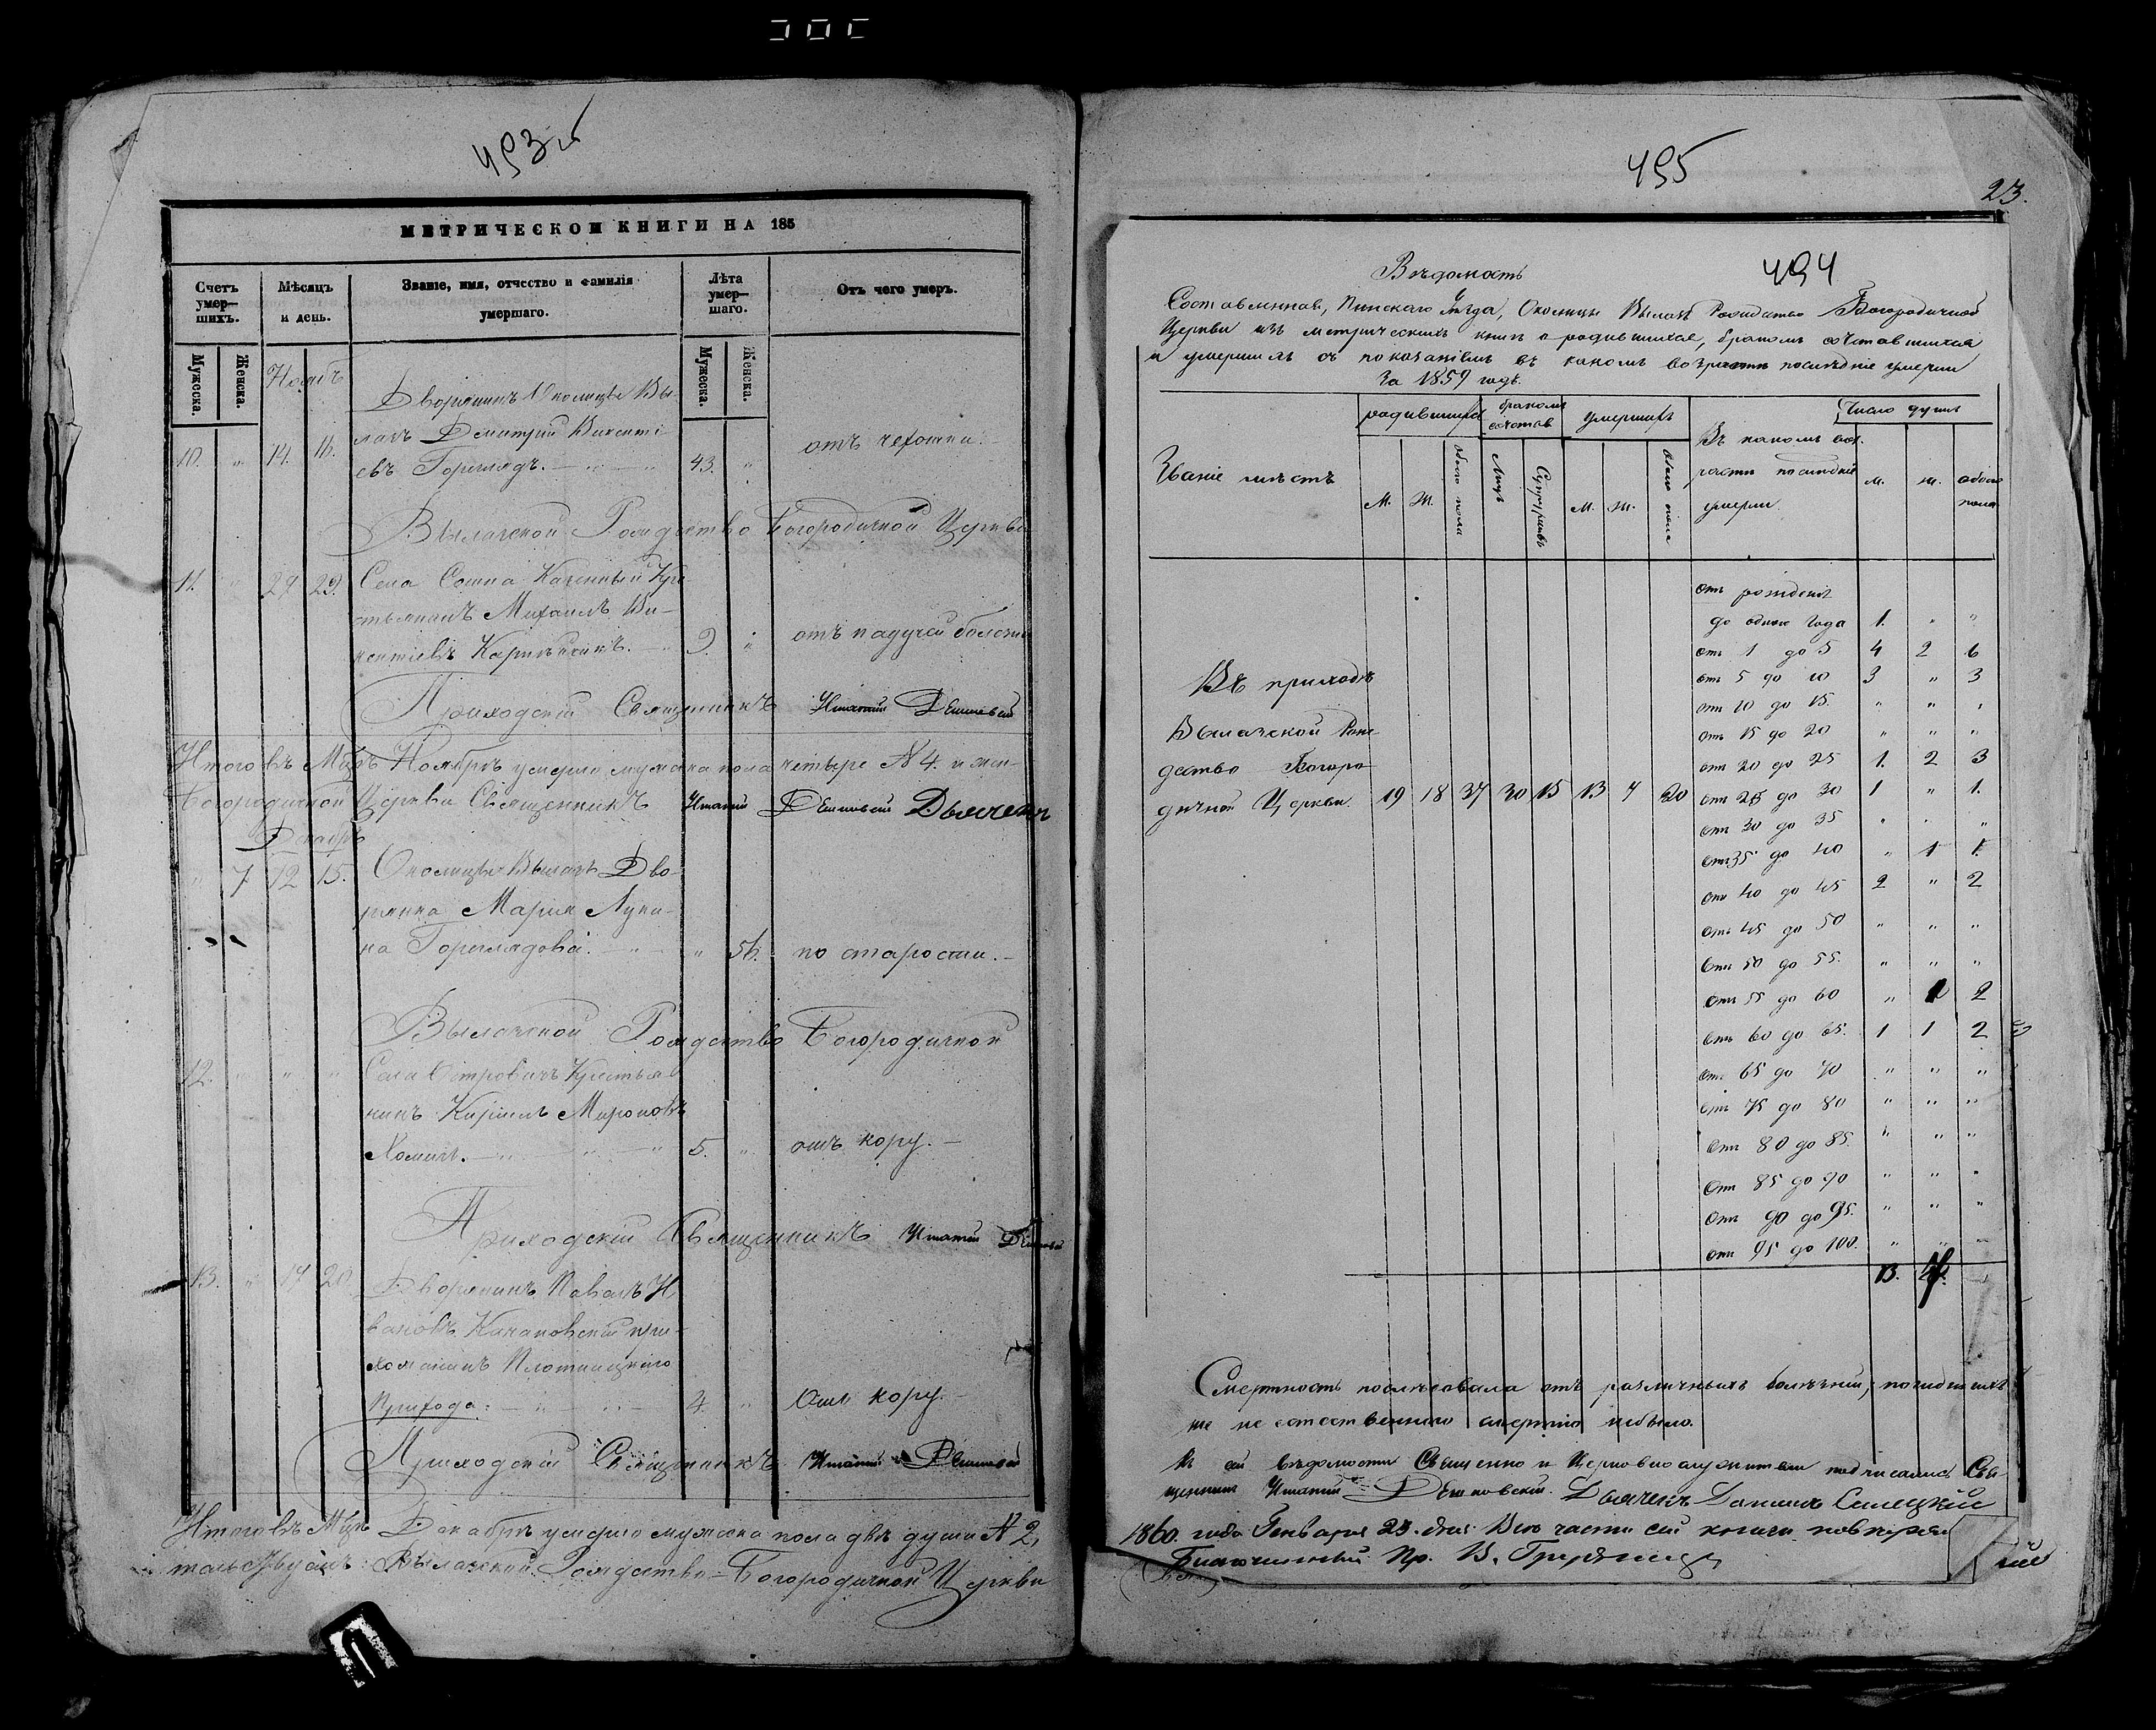 493 об
МЕТРИЧЕСКОЙ КНИГИ НА 185
Счетъ умер—шихъ.
Мѣсяцъ и день.
Званіе, имя, отчество и фамилія умершаго.
Лѣта умер—шаго.
Отъ чего умеръ.
Мужеска. Женска.
Мужеска. Женска.
Ноябрь
Дворянинъ Околицы Вы-
лазъ Дмитрій Викенті-
10. " 14. 16. евъ Гореглядъ. 43. " отъ чехотки.
Вылазской Рождество Богородичной Церкви
11. " 27 29. Села Сошна Казенный Кре-
стьянинъ Михаилъ Ви-
кентіевъ 9. " отъ падучей болезни
Приходскій Священникъ Игнатій
Итого въ Мцѣ Ноябрѣ умерло мужеска пола четыре № 4. и жен-
Богородичной Церкви Священникъ Игнатій Дьячекъ
Декабрь
" 7. 12 15. Околицы Вылазъ Дво-
рянка Марія Луки-
на Гореглядова. " 56. по старости.
Вылазской Рождество Богородичной
12. " " " Села Островичъ Крестья-
нинъ Кирилъ Мироновъ
Хомичъ. 5. " отъ кору.
Приходскій Священникъ Игнатій
13. " 17 20. Дворянинъ Павелъ И-
вановъ Качановскій при-
хожанинъ Плотницкаго
Прихода: 4. " Отъ кору.
Приходскій Священникъ Игнатій
Итого въ Мцѣ Декабрѣ умерло мужеска пола двѣ души № 2,
Вылазской Рождество-Богородичной Церкви
495
23.
494
Вѣдомость
Составленная, Пинскаго Уѣзда, Околицы Вылазъ Рождество Богородичной
Церкви изъ метрическихъ книгъ о родившихся, бракомъ сочетавшихся
и умершихъ съ показаніемъ въ какомъ возрастѣ послѣдніе умерли
За 1859 годъ.
Званіе мѣстъ
родившихся
бракомъ сочетав
умершихъ
Въ какомъ воз-
растѣ послѣдніе
умерли.
Число душъ
М. Ж. обоего пола
Лицъ Супружествъ
М. Ж. обоего пола
м. ж. обоего пола
отъ рожденія
до одного года 1. " "
отъ 1 до 5 4 2 6
Въ приходѣ отъ 5 до 10 3 " 3
отъ 10 до 15. " " "
Вылазской Рож- отъ 15 до 20 " " "
дество Богоро- отъ 20 до 25 1. 2 3
дичной Церкви. 19 18 37 30 15 13 7 20 отъ 25 до 30 1 " 1.
отъ 30 до 35 " " "
отъ 35 до 40 " 1 1.
отъ 40 до 45 2 " 2
отъ 45 до 50 " " "
отъ 50 до 55. " " "
отъ 55 до 60 " 1 2
отъ 60 до 65. 1 1 2
отъ 65 до 70 " " "
отъ 75 до 80 " " "
отъ 80 до 85. " " "
отъ 85 до 90 " " "
отъ 90 до 95. " " "
отъ 95 до 100. " " "
13. 7.
Смертность послѣдовала отъ различныхъ болѣзней,
не естественною смертію небыло.
Къ сей вѣдомости Священно и Церковнослужители подписались Свя-
щенникъ Игнатій Дьячекъ
1860. года Генваря 23. дня
Благочинный Пр. В.